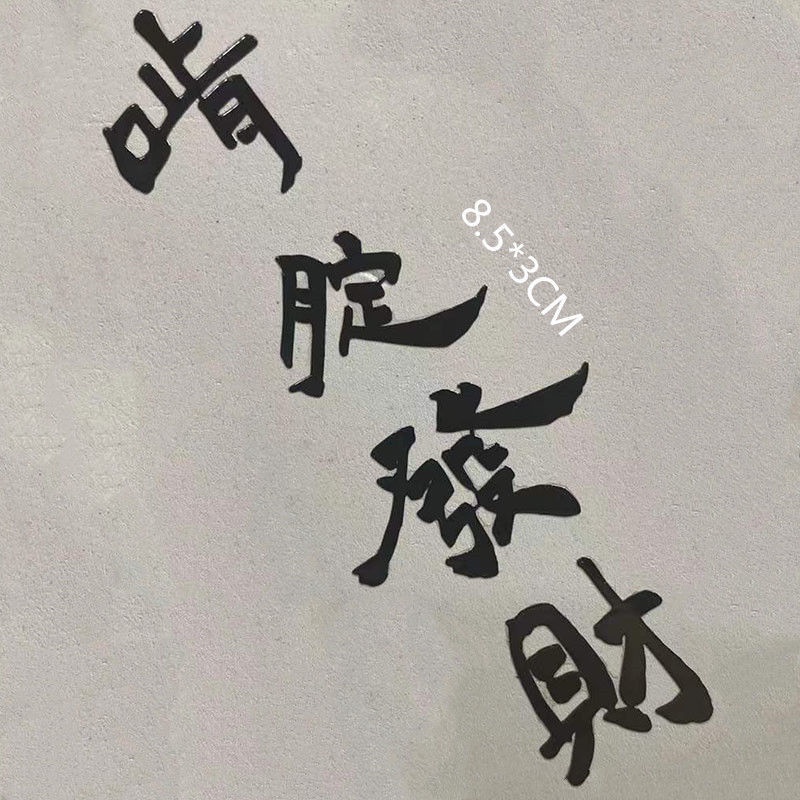 啃腚發財
8.5*3CM